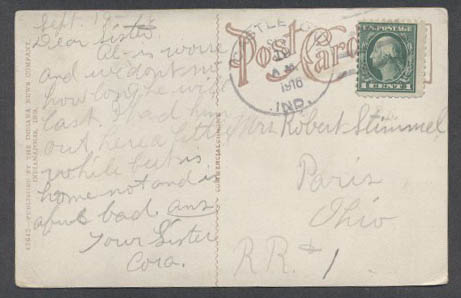 Sept. 19-
Dear Sister
Al- is worse
and we dont no
how long he will
last. I had him
out here a little
while but is
home not and is
afful bad. ans
Your Sister
Cora.
Post Card
SEP
A M
1916
IND.
1 CENT 1
Mrs Robert Stimmel
Paris
Ohio
R R # 1
PUBLISHED BY THE INDIANA NEWS COMPANY,
INDIANAPOLIS, IND.
COMMERCIALCHROME